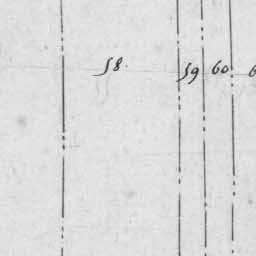 58. 59 60.